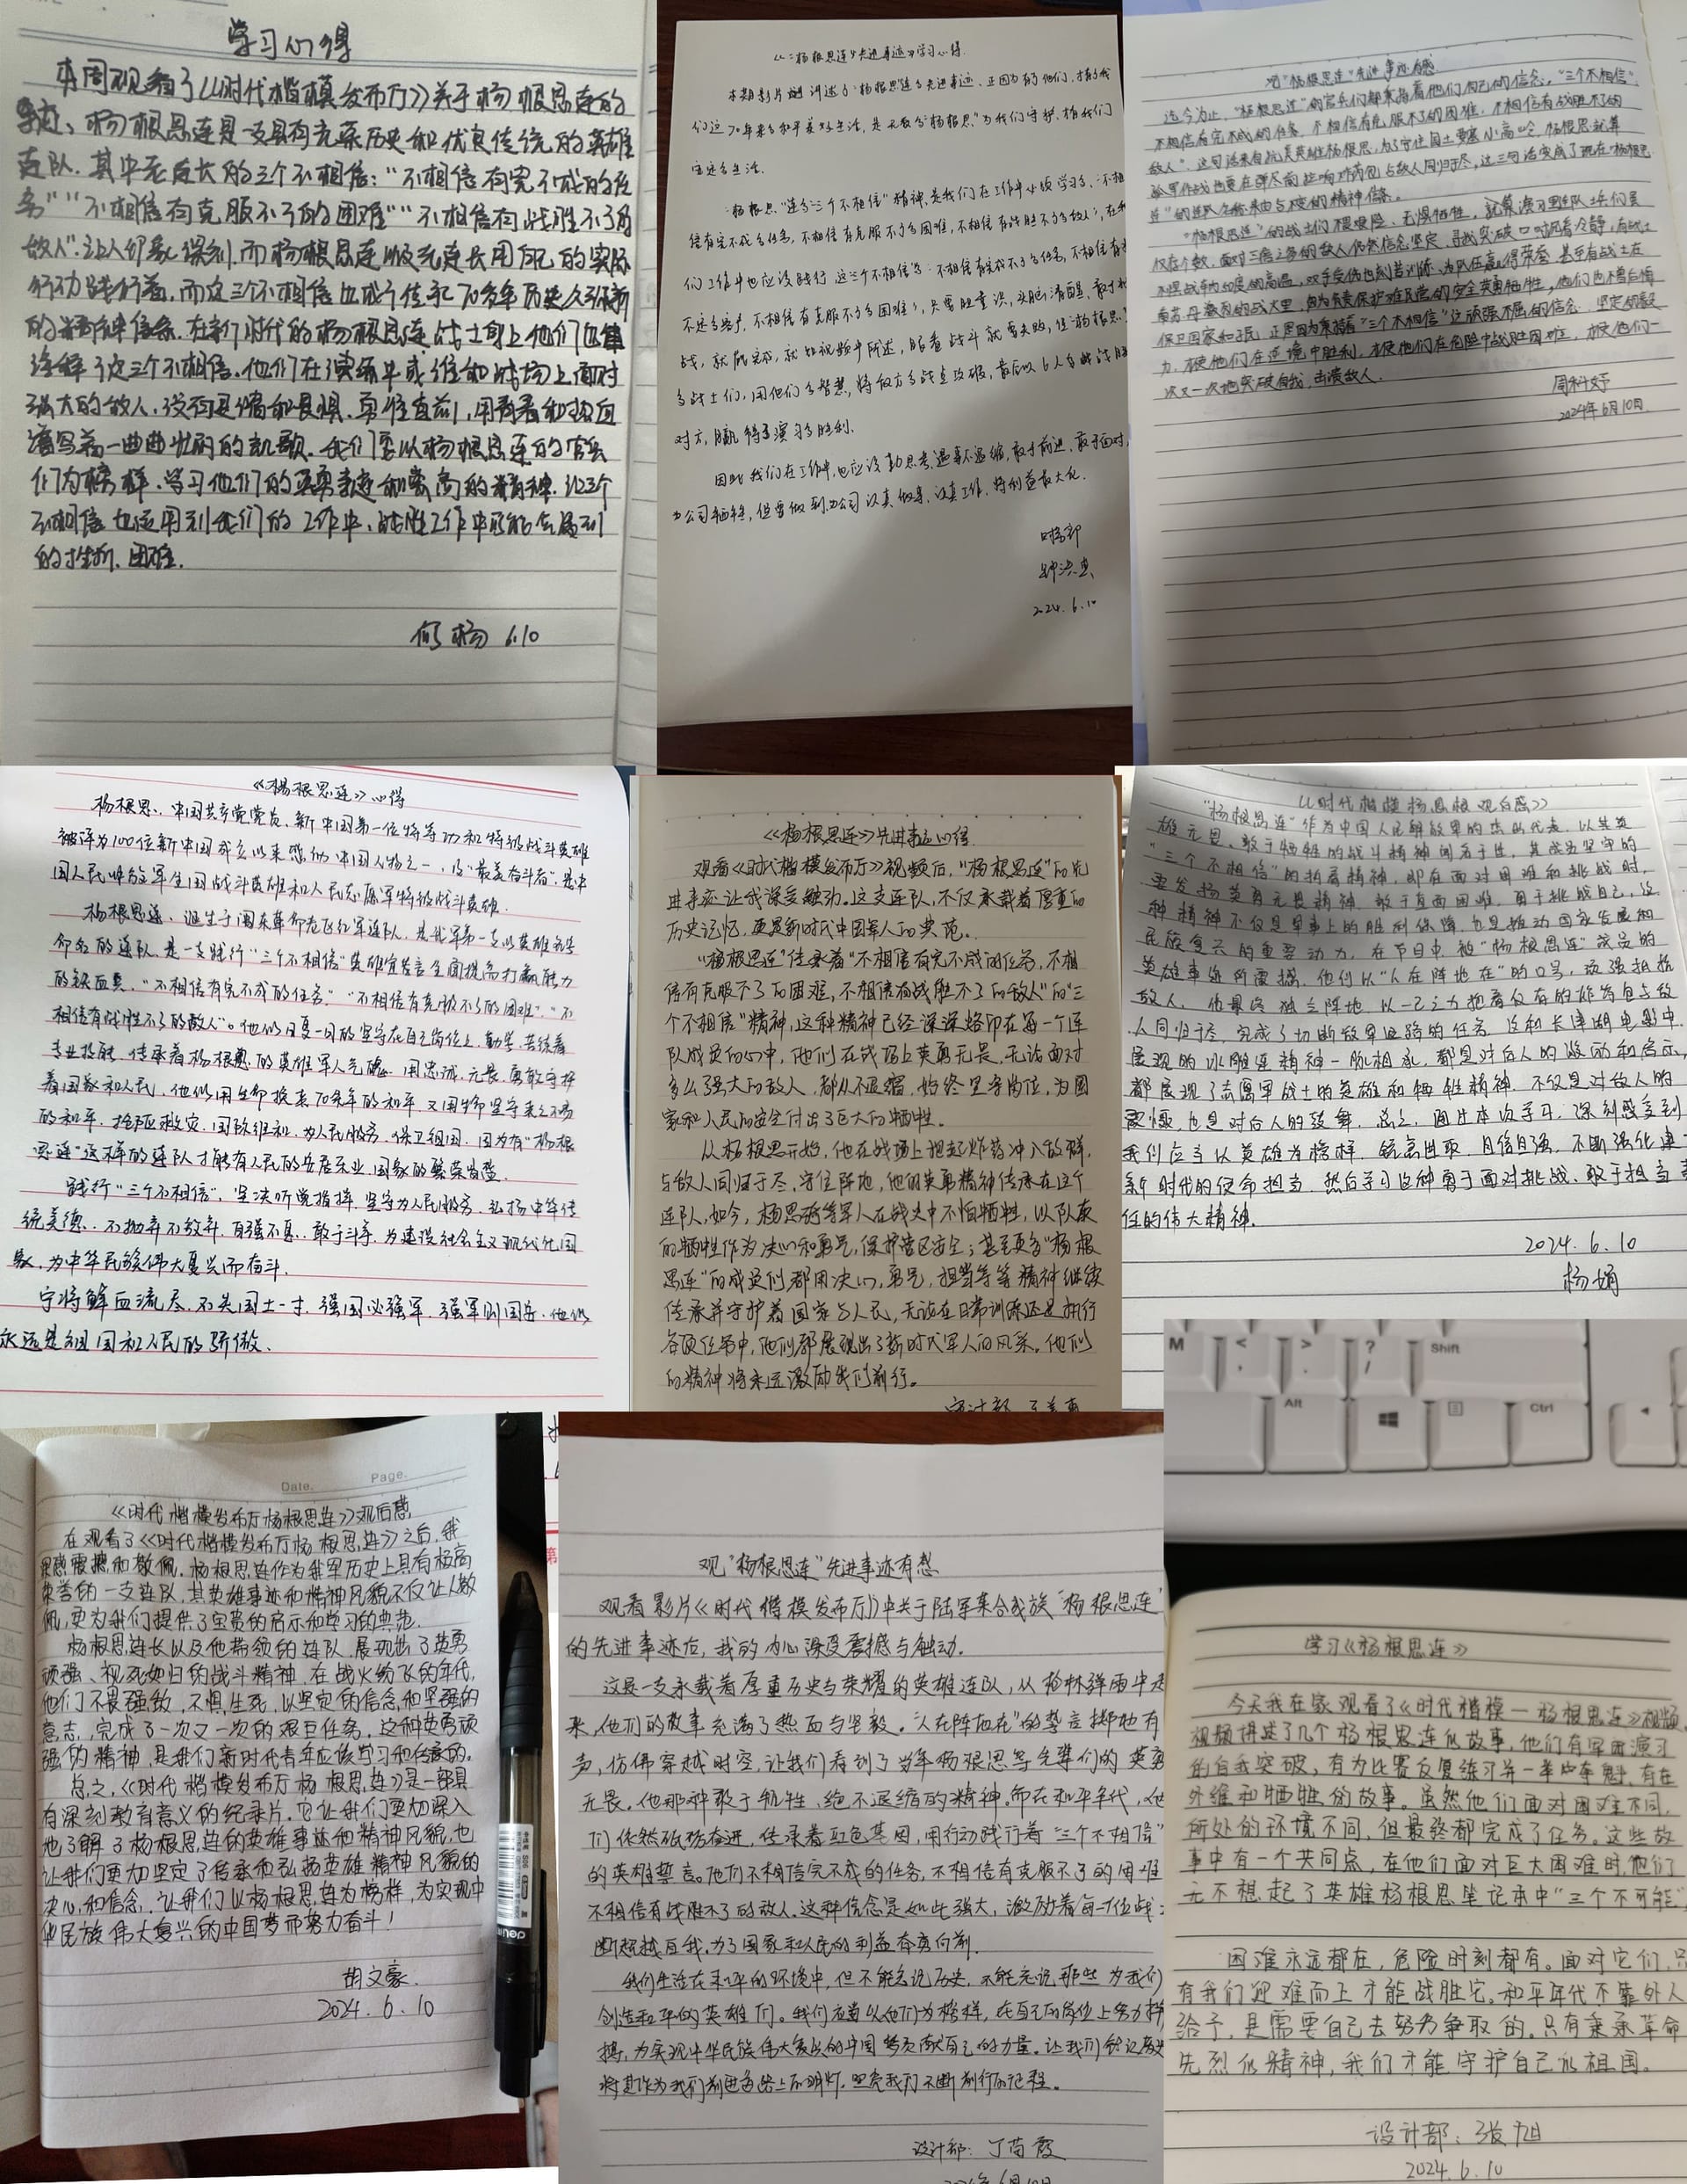 学习心得
本周观看了《时代楷模发布厅》关于杨根思连的
事迹、杨根思连是一支具有光荣历史和优良传统的英雄
连队.其中老连长的三个不相信:"不相信有完不成的任
务""不相信有克服不了的困难""不相信有战胜不了的
敌人".让人印象深刻.而杨根思连以及先连长用自己的实际
行动践行着,而这三个不相信也成了传承70多年历史
的精神信条.在新时代的杨根思连战士身上他们也
诠释了这三个不相信.他们在演练中或维和战场上面对
强大的敌人,没有退缩和畏惧.勇往直前,用青春和热血
谱写着一曲曲壮丽的凯歌.我们要以杨根思连的官兵
们为榜样.学习他们的英勇和崇高的精神.让三个
不相信也运用到我们的工作中,战胜工作中可能会遇到
的挫折.困难.
何杨 6.10
《"杨根思连"先进事迹》学习心得
本期影片讲述了"杨根思"连的先进事迹.正因为有他们,才有我
们这70年来的和平美好生活,是无数的"杨根思"为我们守护.给我们
"杨根思"连的"三个不相信"精神是我们在工作中必须学习的."不相
信有完不成的任务,不相信有克服不了的困难,不相信有战胜不了的敌人",在我
们工作中也应该践行这三个不相信
战,就能完成,就如视频中所述,
的战士们,用他们的智慧,将敌方的战车攻破,最后以6人
对方,赢得了演习的胜利.
因此我们在工作中,也应该勤思考.遇事不退缩,敢于前进,敢于面对,
为公司牺牲,但要做到为公司认真做事,认真工作,将利益最大化.
2024.6.10
观"杨根思连"先进事迹有感
迄今为止,"杨根思连"的官兵们都秉持着他们自己的信念,"三个不相信"
不相信有完不成的任务,不相信有克服不了的困难,不相信有战胜不了的
敌人".这句话来自抗美英雄杨根思,为了守住国土要塞小高岭,杨根思就算
连"的连队名称来由与不变的精神信条.
"杨根思连"的战士们不畏艰险、无惧牺牲,就算演习里连队士兵们
仅存个数,面对三倍之多的敌人仍然信念坚定、寻找突破口
保卫国家和子民.正是因为秉持着"三个不相信"这顽强不屈的信念、坚定的毅
力,才使他们在逆境中胜利,才使他们在危险中战胜困难,才使他们一
次又一次地突破自我,击溃敌人.
周科妤
2024年6月10日
《杨根思连》心得
杨根思、中国共产党党员、新中国第一位特等功和特级战斗英雄
被评为100位新中国成立以来感动中国人物之一,及"最美奋斗者".是中
国人民解放军全国战斗英雄和人民志愿军特级战斗英雄.
杨根思连、诞生于闽东革命老区红军连队,是我军第一支以英雄名字
命名的连队,是一支践行"三个不相信"英雄宣言全面提高打赢能力
的铁血集."不相信有完不成的任务""不相信有克服不了的困难""不
相信有战胜不了的敌人"。他们日复一日的坚守在自己岗位上.勤学苦练着
专业技能.传承着杨根思的英雄军人气魄.用忠诚、无畏、勇敢守护
着国家和人民,他们用生命换来70余年的和平.又用生命坚守来之不易
的和平.抢险救灾、国际维和.为人民服务.保卫祖国.因为有"杨根
思连"这样的连队才能有人民的安居乐业,国家的繁荣昌盛.
践行"三个不相信".坚决听党指挥.坚守为人民服务.弘扬中华传
统美德.不抛弃不放弃.自强不息.敢于斗争.为建设社会主义现代化国
家.为中华民族伟大复兴而奋斗.
宁将鲜血流尽.不失国土一寸.强国必强军.强军则国安.他们
永远是祖国和人民的骄傲.
《杨根思连》先进事迹心得
观看《时代楷模发布厅》视频后,"杨根思连"的先
进事迹让我深受触动。这支连队,不仅承载着厚重的
历史记忆,更是新时代中国军人的典范。
"杨根思连"传承着"不相信有完不成的任务,不相
信有克服不了的困难,不相信有战胜不了的敌人"的"三
个不相信"精神,这种精神已经深深烙印在每一个连
队成员的心中,他们在战场上英勇无畏,无论面对
多么强大的敌人,都从不退缩,始终坚守岗位,为国
家和人民的安全付出了巨大的牺牲。
从杨根思开始,他在战场上抱起炸药冲入敌群,
与敌人同归于尽,守住阵地,他的英勇精神传承在这个
连队,如今,杨思琦等军人在战火中不怕牺牲,以队友
的牺牲作为决心和勇气,保护营区安全;甚至更多"杨根
思连"的成员们都用决心,勇气,担当等等精神继续
传承并守护着国家与人民,无论在日常训练还是执行
各项任务中,他们都展现出了新时代军人的风采。他们
的精神将永远激励我们前行。
《时代楷模杨思根观后感》
"杨根思连"作为中国人民解放军的杰出代表,以其英
雄无畏、敢于牺牲的战斗精神闻名于世,其成员坚守的
"三个不相信"的拓展精神,即在面对困难和挑战时,
要发扬英勇无畏精神,敢于直面困难,勇于挑战自己,这
种精神不仅是军事上的胜利保障,也是推动国家发展和
民族复兴的重要动力,在节目中,被"杨根思连"成员的
英雄事迹所震撼,他们以"人在阵地在"的口号,顽强抵抗
敌人,他最终独立阵地,以一己之力抱着仅有的炸药包与敌
人同归于尽,完成了切断敌军退路的任务,这和长津湖电影中
展现的冰雕连精神一脉相承,都是对后人的激励和启示,
都展现了志愿军战士的英雄和牺牲精神,不仅是对敌人的
震慑,也是对后人的鼓舞.总之,通过本次学习,深刻感受到
我们应当以英雄为榜样,锐意进取,自信自强,不断强化
新时代的使命担当,然后学习这种勇于面对挑战、敢于担当责
任的伟大精神.
2024.6.10
杨娟
M < , > . ? / Shift
Alt Ctrl
Date. Page.
《时代楷模发布厅杨根思连》观后感
在观看了《时代楷模发布厅杨根思连》之后,我
深感震撼和敬佩.杨根思连作为我军历史上具有极高
荣誉的一支连队,其英雄事迹和精神风貌不仅让人敬
佩,更为我们提供了宝贵的启示和学习的典范.
杨根思连长以及他带领的连队,展现出了英勇
顽强、视死如归的战斗精神.在战火纷飞的年代,
他们不畏强敌,不惧生死,以坚定的信念和坚强的
意志,完成了一次又一次的艰巨任务,这种英勇顽
强的精神,是我们新时代青年应该学习和传承的.
总之,《时代楷模发布厅杨根思连》是一部具
有深刻教育意义的纪录片.它让我们更加深入
地了解了杨根思连的英雄事迹和精神风貌,也
让我们更加坚定了传承和弘扬英雄精神风貌的
决心和信念,让我们以杨根思连为榜样,为实现中
华民族伟大复兴的中国梦而努力奋斗!
胡文豪.
2024.6.10
观"杨根思连"先进事迹有感
观看影片《时代楷模发布厅》中关于陆军集合成旅"杨根思连"
的先进事迹后,我的内心深受震撼与触动.
这是一支承载着厚重历史与荣耀的英雄连队,从枪林弹雨中走
来,他们的故事充满了热血与坚毅."人在阵地在"的誓言掷地有
声,仿佛穿越时空,让我们看到了当年杨根思等先辈们的英勇
无畏.他那种敢于牺牲、绝不退缩的精神.而在和平年代,他
们依然砥砺奋进,传承着红色基因,用行动践行着"三个不相信"
的英雄誓言。他们不相信完不成的任务,不相信有克服不了的困难
不相信有战胜不了的敌人.这种信念是如此强大,激励着每一位战士
断超越自我,为了国家和人民的利益奋勇向前.
我们生活在和平的环境中,但不能忘记历史,不能忘记那些为我们
创造和平的英雄们。我们应当以他们为榜样,在自己的岗位上努力拼
搏,为实现中华民族伟大复兴的中国梦贡献自己的力量.让我们铭记历史
将其作为我们前进道路上的明灯.照亮我们不断前行的征程。
设计部:丁苗霞
学习《杨根思连》
今天我在家观看了《时代楷模—杨根思连》视频,
视频讲述了几个杨根思连的故事,他们有军事演习
的自我突破,有为比赛反复练习并一举夺魁,有在
外维和牺牲的故事。虽然他们面对困难不同,
所处的环境不同,但最终都完成了任务。这些故
事中有一个共同点,在他们面对巨大困难时,他们
无不想起了英雄杨根思笔记本中"三个不可能"
困难永远都在,危险时刻都有。面对它们,只
有我们迎难而上才能战胜它。和平年代不靠外人
给予,是需要自己去努力争取的。只有秉承革命
先烈的精神,我们才能守护自己的祖国。
设计部:张旭
2024.6.10